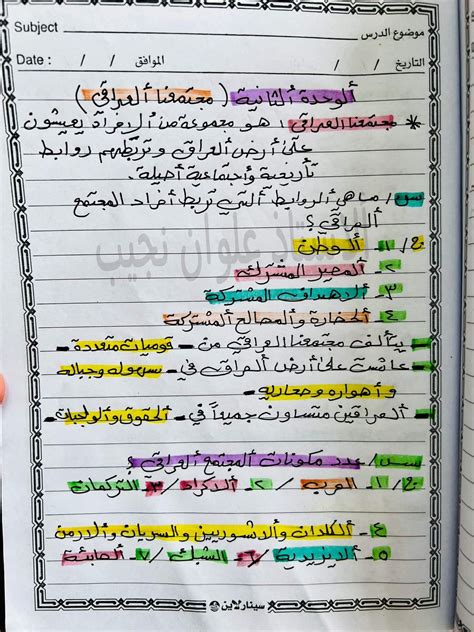 Subject موضوع الدرس
Date : / / الموافق / / التاريخ
الوحدة الثانية ( مجتمعنا العراقي )
* مجتمعنا العراقي : هو مجموعة من الافراد يعيشون
على أرض العراق وتربطهم روابط
تأريخية وأجتماعية أصيلة.
س/ ماهي الروابط التي تربط أفراد المجتمع
العراقي ؟
ج/ ١- الوطن
٢- المصير المشترك
٣- الاهداف المشتركة
٤- الحضارة والمصالح المشتركة
- يتألف مجتمعنا العراقي من - قوميات متعددة -
- عاشت على أرض العراق في - سهوله وجباله
وأهواره وصحاريه -
- العراقين متساوون جميعاً في - الحقوق والواجبات -
س/ عدد مكونات المجتمع العراقي ؟
ج/ ١- العرب / ٢- الاكراد / ٣- التركمان
٤- الكلدان والاشوريين والسريان والارمن
٥- الايزيدية / ٦- الشبك / ٧- الصابئة
الاستاذ علوان نجيب
سينارلاين